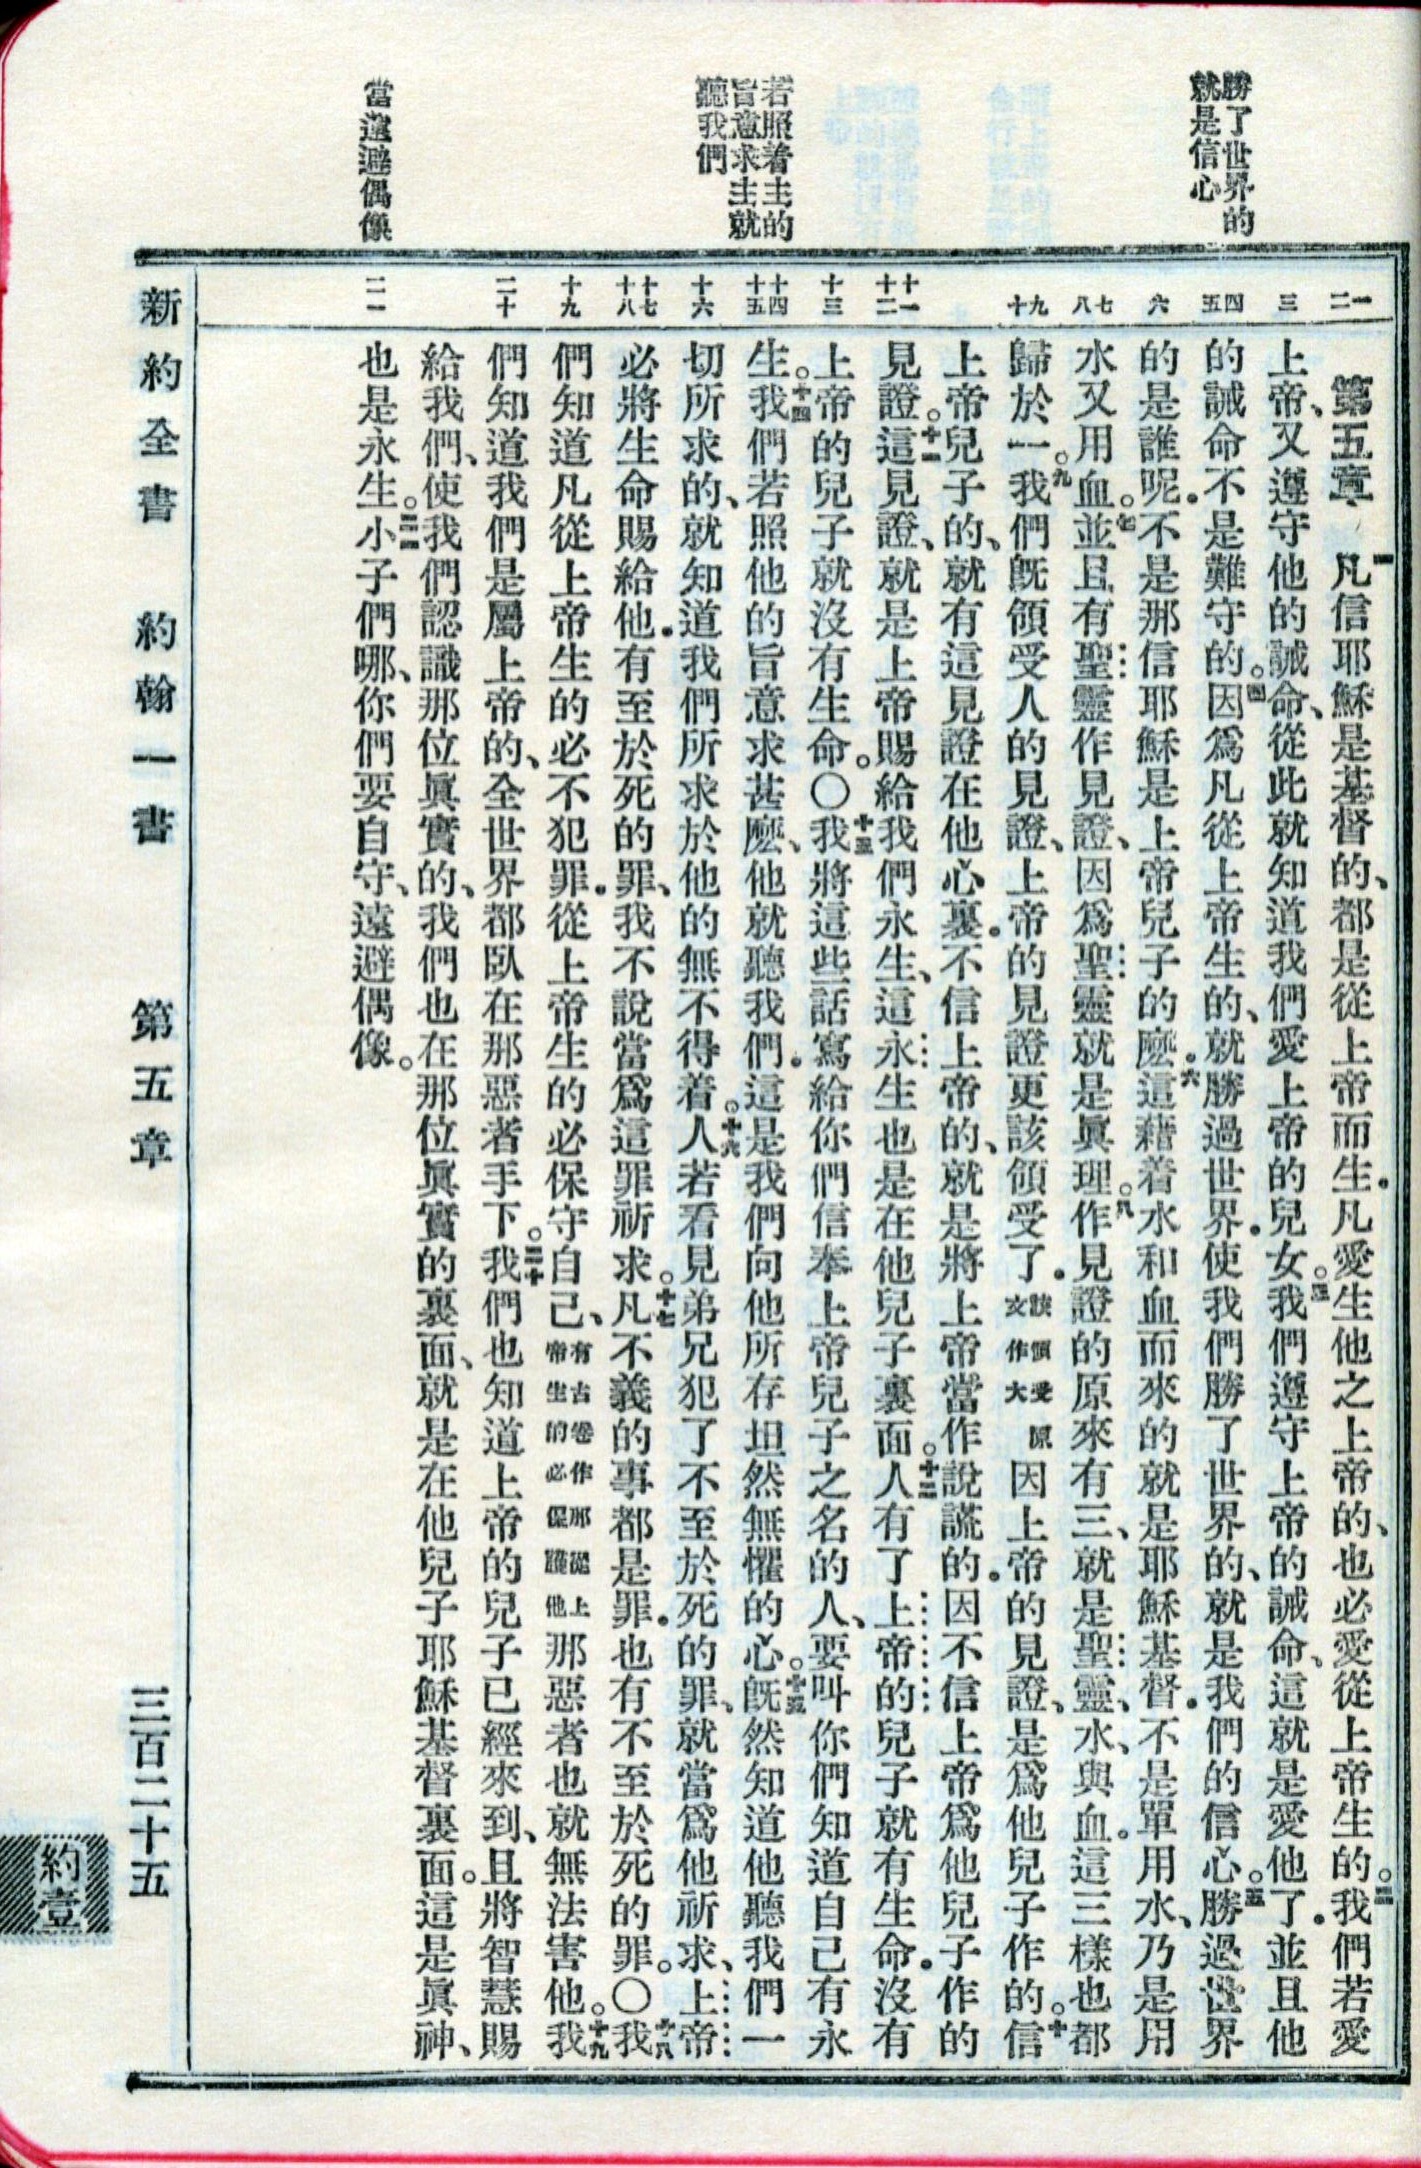 勝了世界的
就是信心
若照着主的
旨意求主就
聽我們
當遠避偶像
一
二
三
四
五
六
七
八
九
十
十一
十二
十三
十四
十五
十六
十七
十八
十九
二十
二一
第五章　一凡信耶穌是基督的、都是從上帝而生．凡愛生他之上帝的、也必愛從上帝生的。二我們若愛
上帝、又遵守他的誡命、從此就知道我們愛上帝的兒女。三我們遵守上帝的誡命、這就是愛他了．並且他
的誡命不是難守的。四因爲凡從上帝生的、就勝過世界．使我們勝了世界的、就是我們的信心。五勝過世界
的是誰呢．不是那信耶穌是上帝兒子的麼．六這藉着水和血而來的就是耶穌基督．不是單用水、乃是用
水又用血。七並且有聖靈作見證、因爲聖靈就是眞理。八作見證的原來有三、就是聖靈、水、與血。這三樣也都
歸於一。九我們旣領受人的見證、上帝的見證更該領受了．該領受原文作大因上帝的見證、是爲他兒子作的。十信
上帝兒子的、就有這見證在他心裏．不信上帝的、就是將上帝當作說謊的．因不信上帝爲他兒子作的
見證。十一這見證、就是上帝賜給我們永生、這永生也是在他兒子裏面。十二人有了上帝的兒子就有生命．沒有
上帝的兒子就沒有生命。〇十三我將這些話寫給你們信奉上帝兒子之名的人、要叫你們知道自己有永
生。十四我們若照他的旨意求甚麼、他就聽我們．這是我們向他所存坦然無懼的心。十五旣然知道他聽我們一
切所求的、就知道我們所求於他的無不得着。十六人若看見弟兄犯了不至於死的罪、就當爲他祈求、上帝
必將生命賜給他．有至於死的罪、我不說當爲這罪祈求。十七凡不義的事都是罪．也有不至於死的罪。〇十八我
們知道凡從上帝生的必不犯罪．從上帝生的必保守自己、有古卷作那從上帝生的必保護他那惡者也就無法害他。十九我
們知道我們是屬上帝的、全世界都臥在那惡者手下。二十我們也知道上帝的兒子已經來到、且將智慧賜
給我們、使我們認識那位眞實的、我們也在那位眞實的裏面、就是在他兒子耶穌基督裏面。這是眞神、
也是永生。二一小子們哪、你們要自守、遠避偶像。
新約全書　約翰一書　第五章　三百二十五
約壹